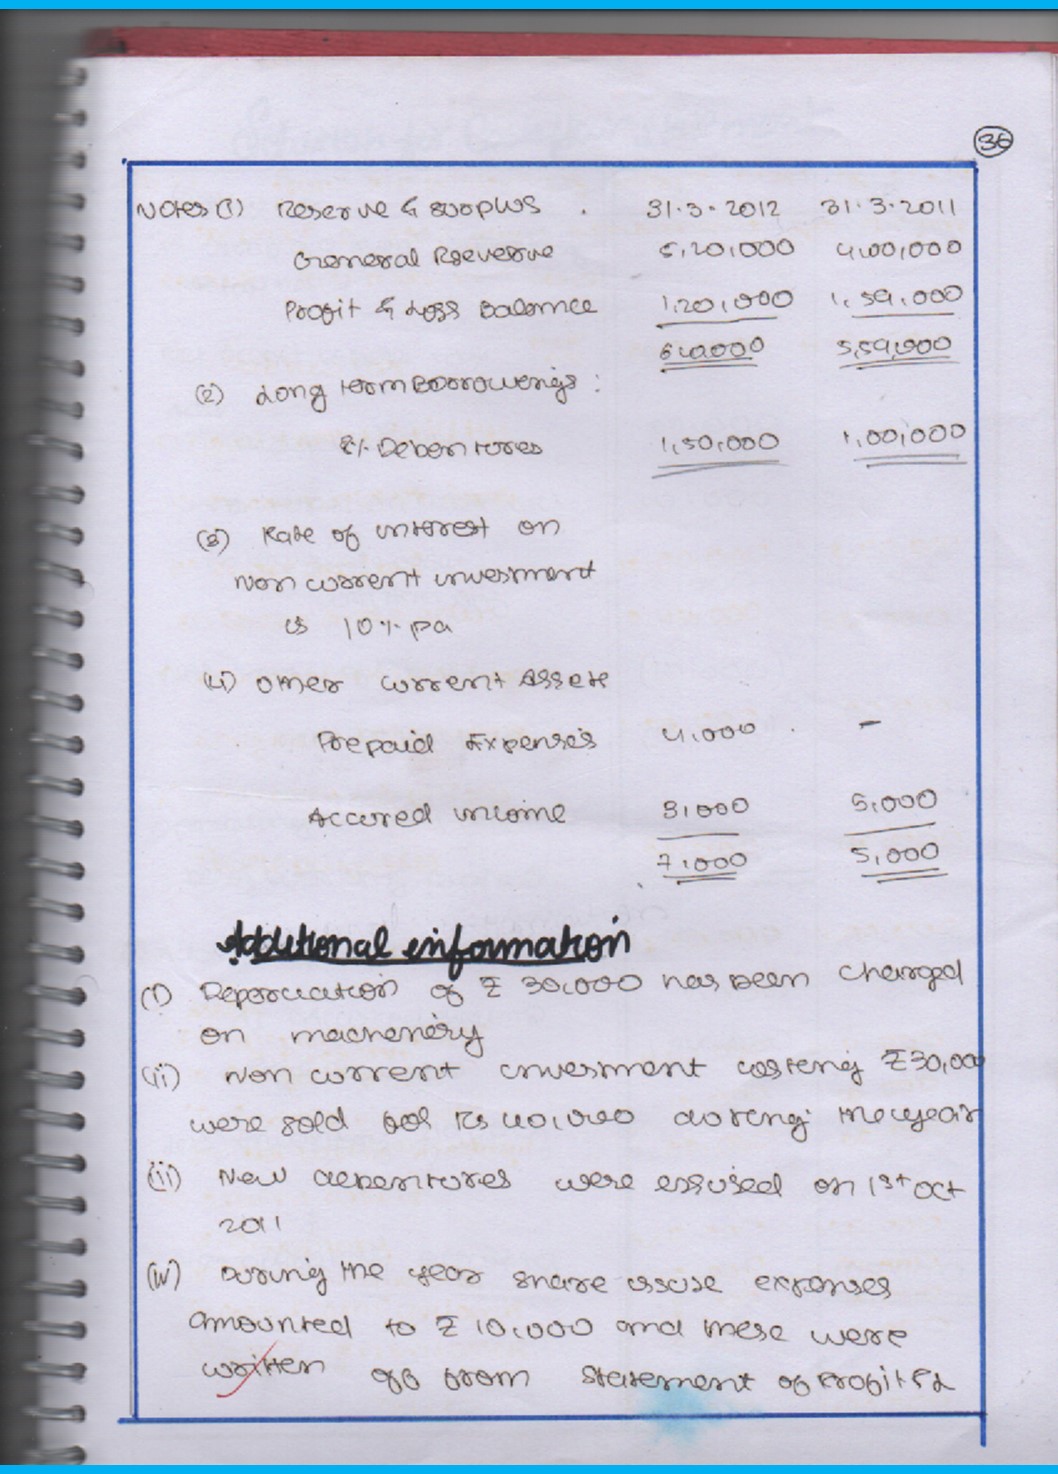 36
Notes (1) Reserve & surplus . 31.3.2012 31.3.2011
General Reverve 5,20,000 4,00,000
Profit & Loss Balance 1,20,000 1,59,000
6,40,000 5,59,000
(2) Long term Borrowings :
8% Debentures 1,50,000 1,00,000
(3) Rate of interest on
Non current investment
is 10% pa
(4) Other current Assets
Prepaid Expenses 4,000 . -
Accured income 3,000 5,000
7,000 5,000
Additional information
(i) Deperciation of ₹ 30,000 has been charged
on machenery
(ii) Non current investment costing ₹30,000
were sold for Rs 40,000 during the year
(iii) New debentures were issused on 1st Oct
2011
(iv) During the year share issuse expenses
amounted to ₹ 10,000 and these were
written off from statement of Profit & L